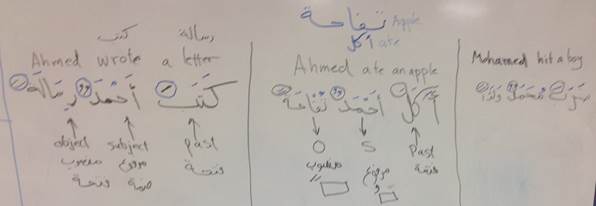 كتب رسالة
Ahmed wrote a letter
كَتَبَ أَحْمَدُ رِسَالَةً
object subject past
منصوب مرفوع فتحة
فتحة ضمة
تفاحة Apple
أكل ate
Ahmed ate an apple
أَكَلَ أَحْمَدُ تُفَاحَةً
O S Past
منصوب مرفوع فتحة
Mohamed hit a boy
ضَرَبَ مُحَمَدٌ وَلَدًا